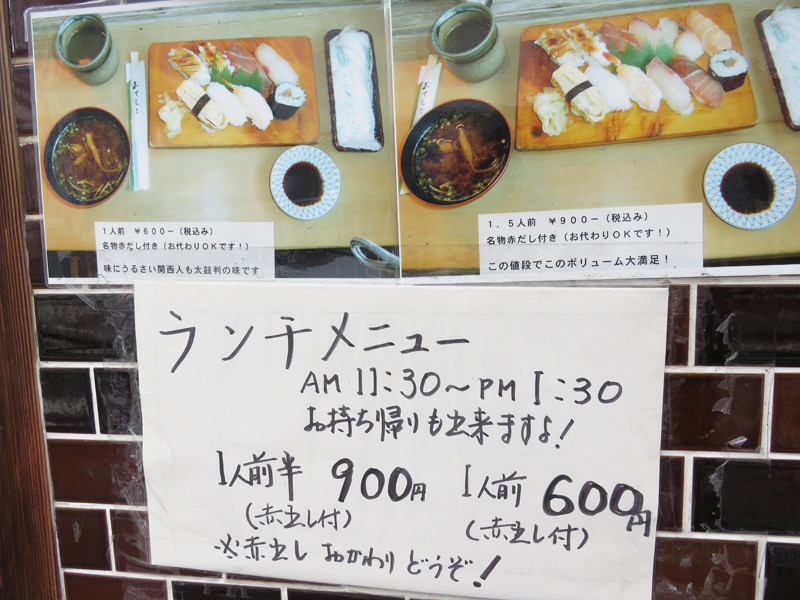 おてもと
1人前 ￥600－(税込み)
名物赤だし付き(お代わりOKです！)
味にうるさい関西人も太鼓判の味です
1．5人前 ￥900－(税込み)
名物赤だし付き(お代わりOKです！)
この値段でこのボリューム大満足！
ランチメニュー
AM 11:30～PM 1:30
お持ち帰りも出来ますよ!
1人前半 900円 1人前 600円
(赤出し付) (赤出し付)
※赤出し おかわり どうぞ!